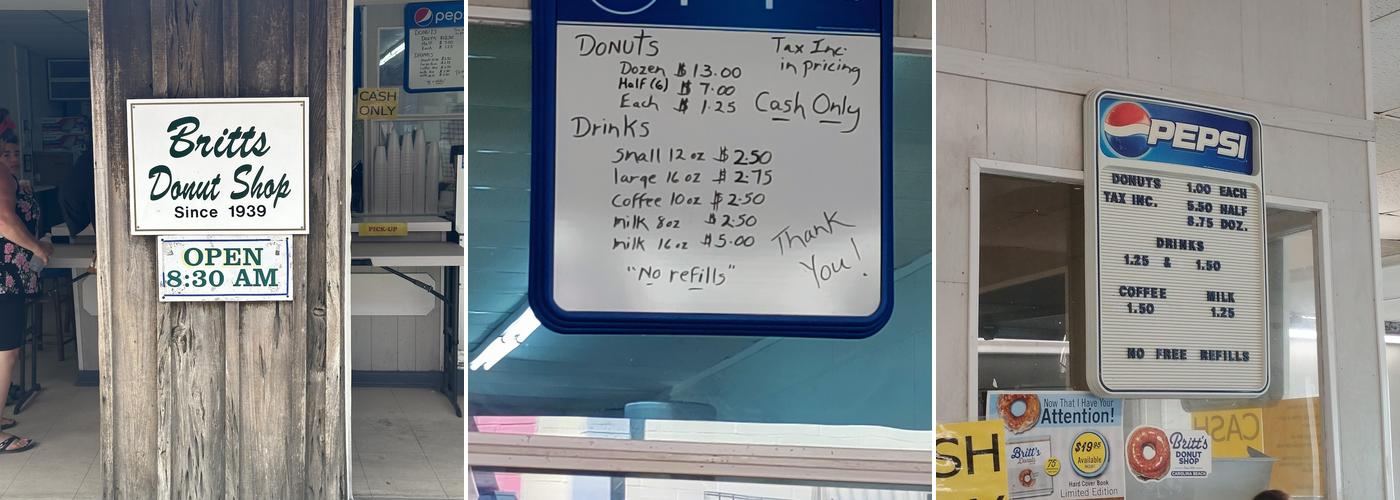 Britts
Donut Shop
Since 1939
OPEN
8:30 AM
CASH
ONLY
PICK-UP
DONUTS
DRINKS
DONUTS
Dozen $ 13.00
Half (6) $ 7.00
Each $ 1.25
Tax Inc.
in pricing
Cash Only
Drinks
Small 12 oz $ 2.50
large 16 oz $ 2.75
coffee 10 oz $ 2.50
milk 8oz $ 2.50
milk 16 oz $ 5.00
"No refills"
Thank
You!
PEPSI
DONUTS 1.00 EACH
TAX INC. 5.50 HALF
8.75 DOZ.
DRINKS
1.25 & 1.50
COFFEE MILK
1.50 1.25
NO FREE REFILLS
Now That I Have Your
Attention!
Britt's
Donuts
75
$19.95
Available
Hard Cover Book
Limited Edition
Britt's
DONUT
SHOP
CAROLINA BEACH
SH
CASH